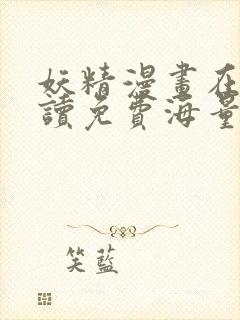 妖精漫畫在
讀免費海量
笑藍